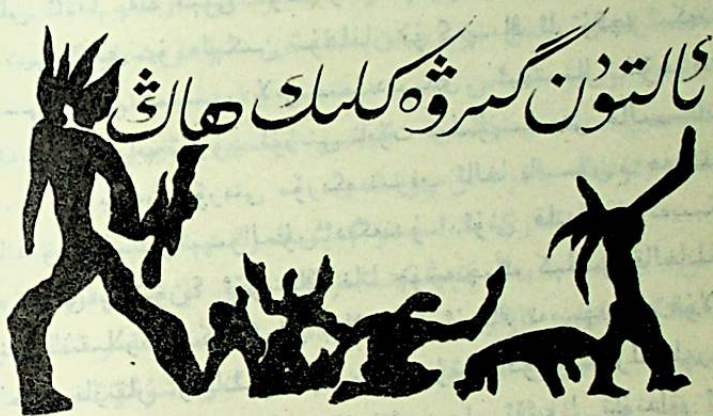 ئالتۇن گىرۋەكلىك ھاڭ